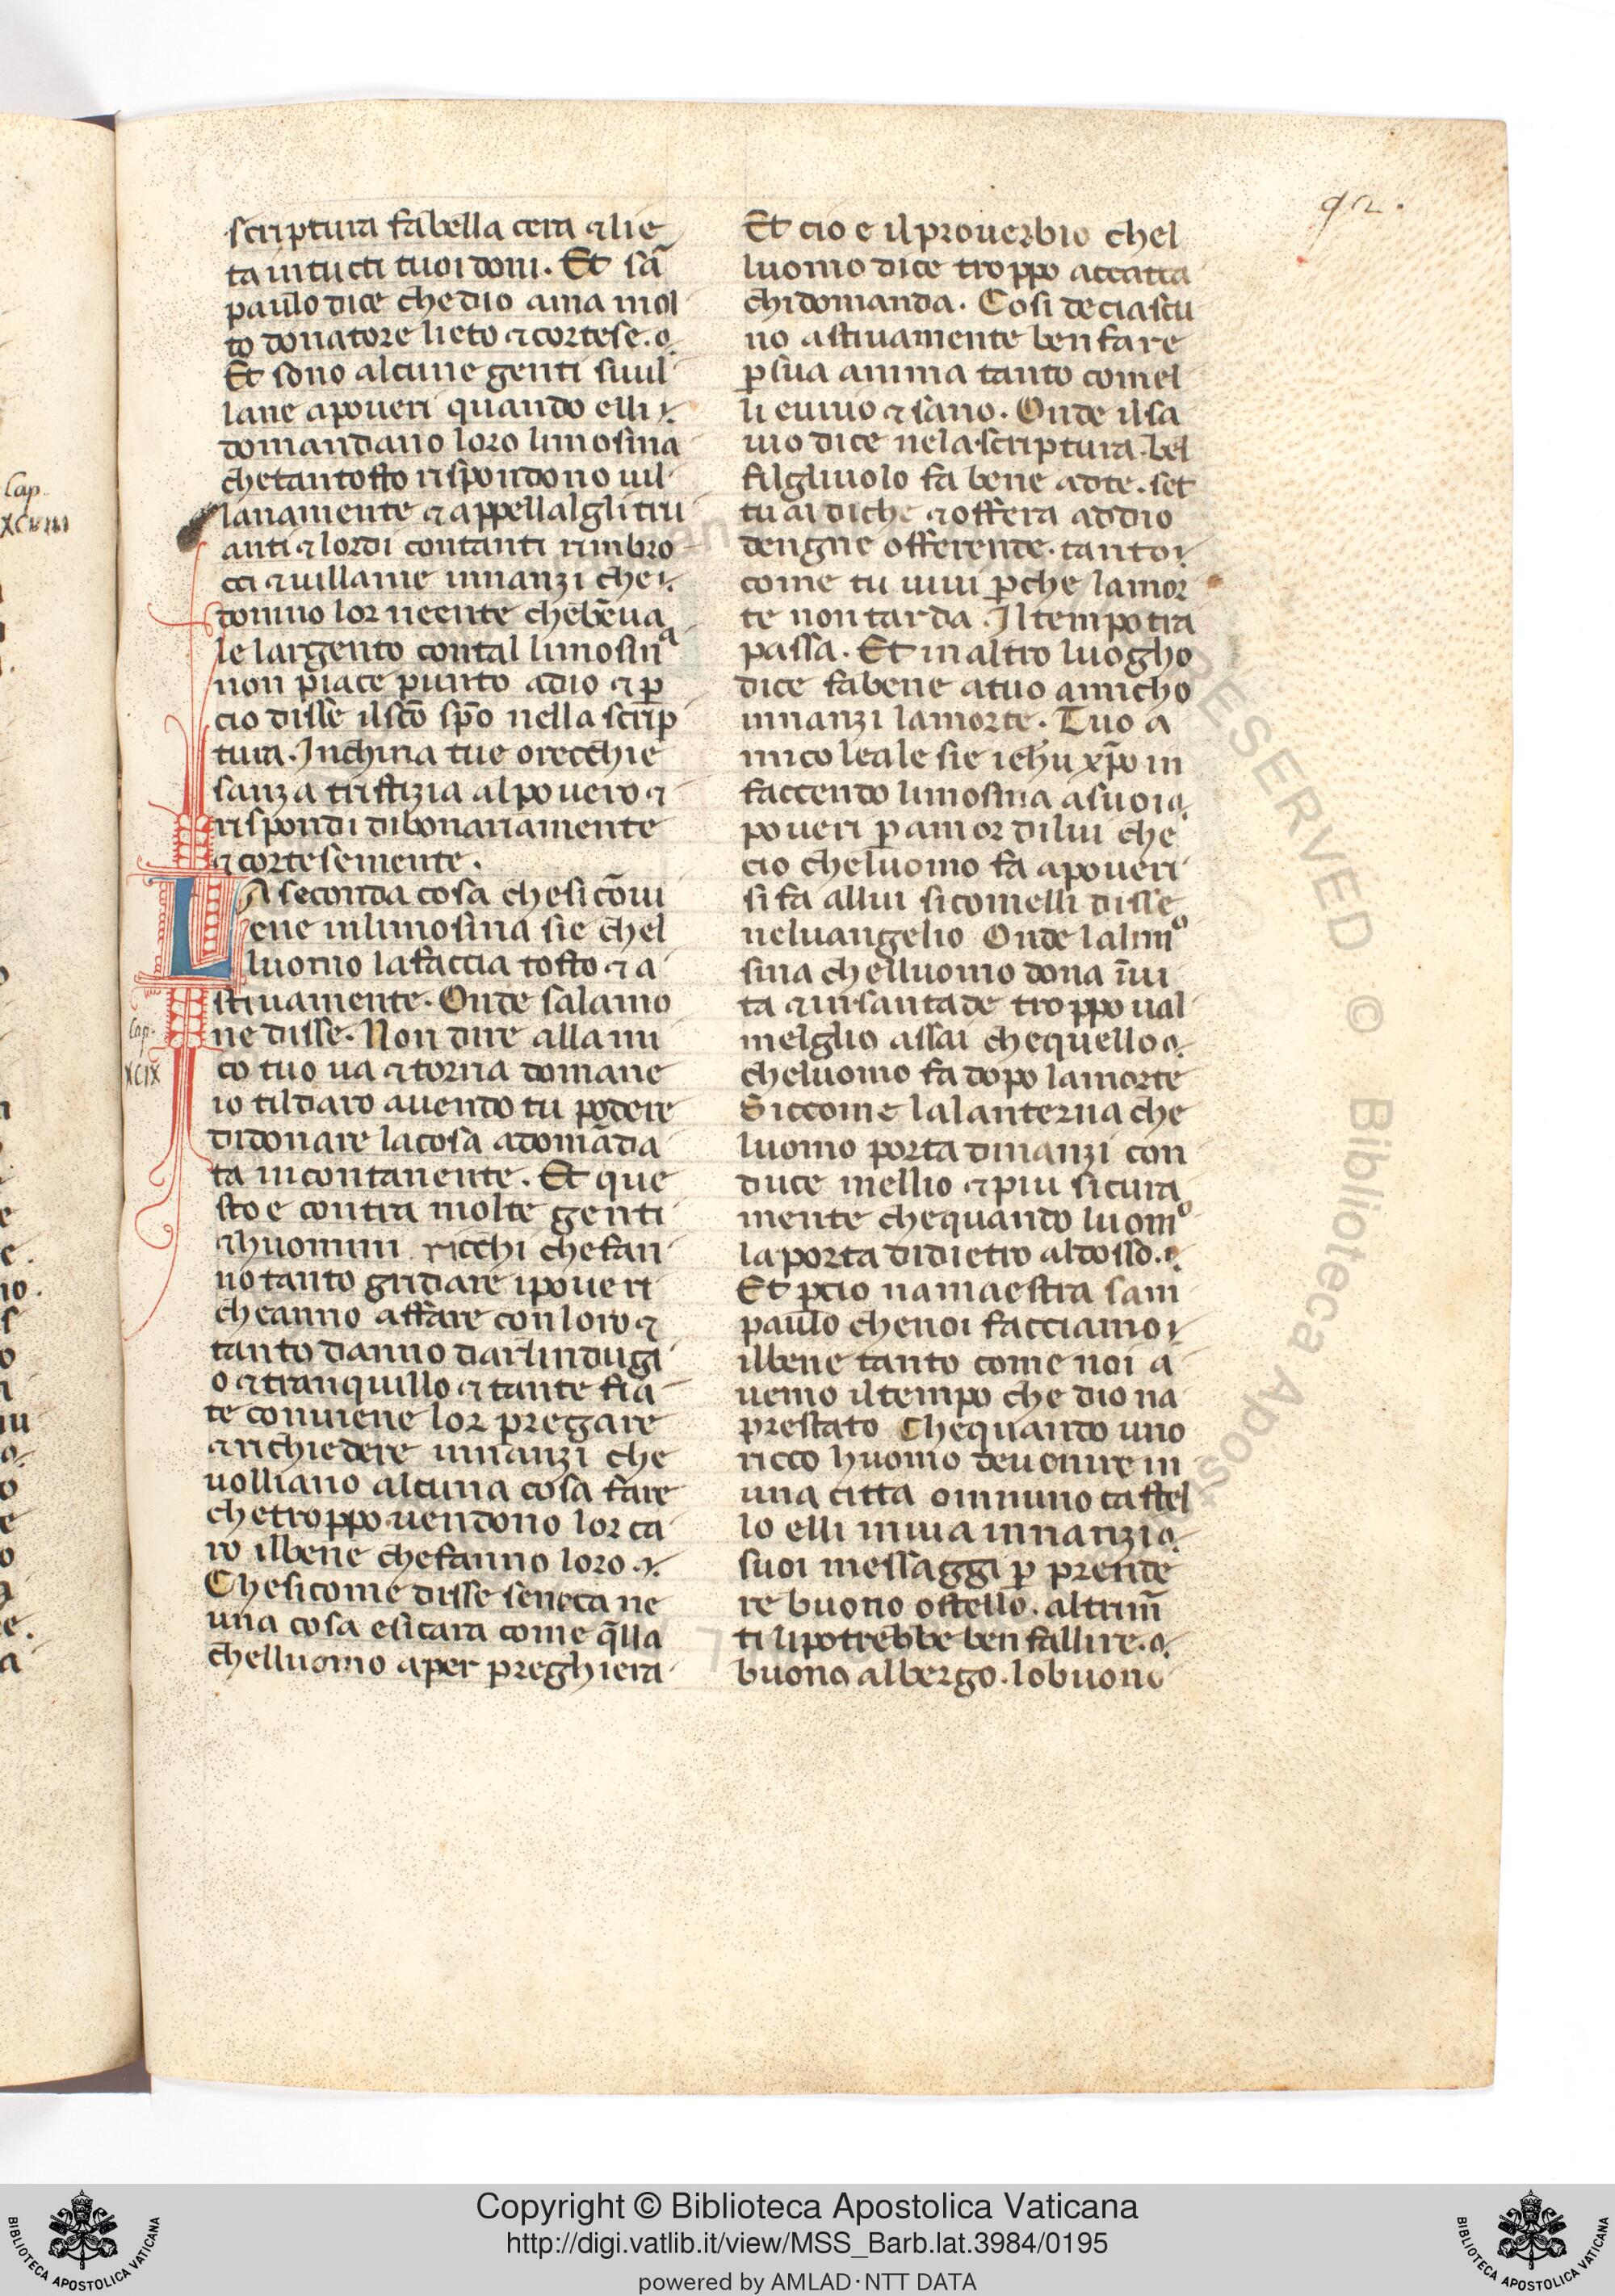 92.
scriptura fa bella cera ⁊ lie
ta in tucti tuoi doni. Et sā
paulo dice che dio ama mol
to donatore lieto ⁊ cortese.
Et sono alcune genti si uil
lane a poueri quando elli
domandano loro limosina
che tantosto rispondono uil
lanamente ⁊ appellalgli tru
anti ⁊ lordi con tanti rimbro
cci ⁊ uillanie innanzi che
donino lor neente che bē ua
le largento cotal limosinª
non piace punto a dio ⁊ ꝑ
cio disse il sc̄o sp̄o nella scrip
tura. Inchina tue orecchie
sanza tristizia al pouero ⁊
rispondi dibonariamente
⁊ cortesemente.
LA seconda cosa che si cōui
ene in limosina sie chel
luomo la faccia tosto ⁊ a
stiuamente. Onde salamo
ne disse. Non dire alla mi
co tuo ua ⁊ torna domane
io til daro auendo tu podere
di donare la cosa adomāda
ta incontanente. Et que
sto e contra molte genti
⁊ huomini ricchi che fan
no tanto gridare i poueri
che anno affare con loro ⁊
tanto danno darlindugi
o ⁊ tranquillo ⁊ tante fia
te conuiene lor pregare
⁊ richiedere innanzi che
uolliano alcuna cosa fare
che troppo uendono lor ca
ro il bene che fanno loro
Che si come disse seneca ne
una cosa e si cara come q̄lla
chelluomo a per preghiera
Cap.
XCIX
Et cio e il prouerbio chel
luomo dice troppo accatta
chi domanda. Cosi de ciascu
no astiuamente ben fare
ꝑ sua anima tanto comel
li e uiuo ⁊ sano. Onde il sa
uio dice nela scriptura. bel
filgliuolo fa bene adte. set
tu ai di che ⁊ offera addio
dengne offerende. tanto
come tu uiui ꝑche la mor
te non tarda. Il tempo tra
passa. Et in altro luogho
dice fa bene a tuo amicho
innanzi la morte. Tuo a
mico leale sie iehu xp̄o in
faccendo limosina a suoi
poueri ꝑ amor di lui che
cio che luomo fa a poueri
si fa allui si comelli disse
nel uangelio Onde la limº
sina chelluomo dona ī ui
ta ⁊ in santade troppo ual
melglio assai che quello
che luomo fa dopo la morte
Siccome la lanterna che
luomo porta dinanzi con
duce mellio ⁊ piu sicura
mente che quando luomº
la porta di dietro al dosso.
Et ꝑcio namaestra sam
paulo che noi facciamo
il bene tanto come noi a
uemo il tempo che dio na
prestato Che quando uno
ricco huomo de uenire in
una citta o in nuno castel
lo elli inuia innanzi
suoi messaggi ꝑ prende
re buono ostello. altrim̄
ti li potrebbe ben fallire.
buono albergo. lo buono
Cap.
XCVIII
Copyright © Biblioteca Apostolica Vaticana
http://digi.vatlib.it/view/MSS_Barb.lat.3984/0195
powered by AMLAD·NTT DATA
BIBLIOTECA APOSTOLICA VATICANA
BIBLIOTECA APOSTOLICA VATICANA